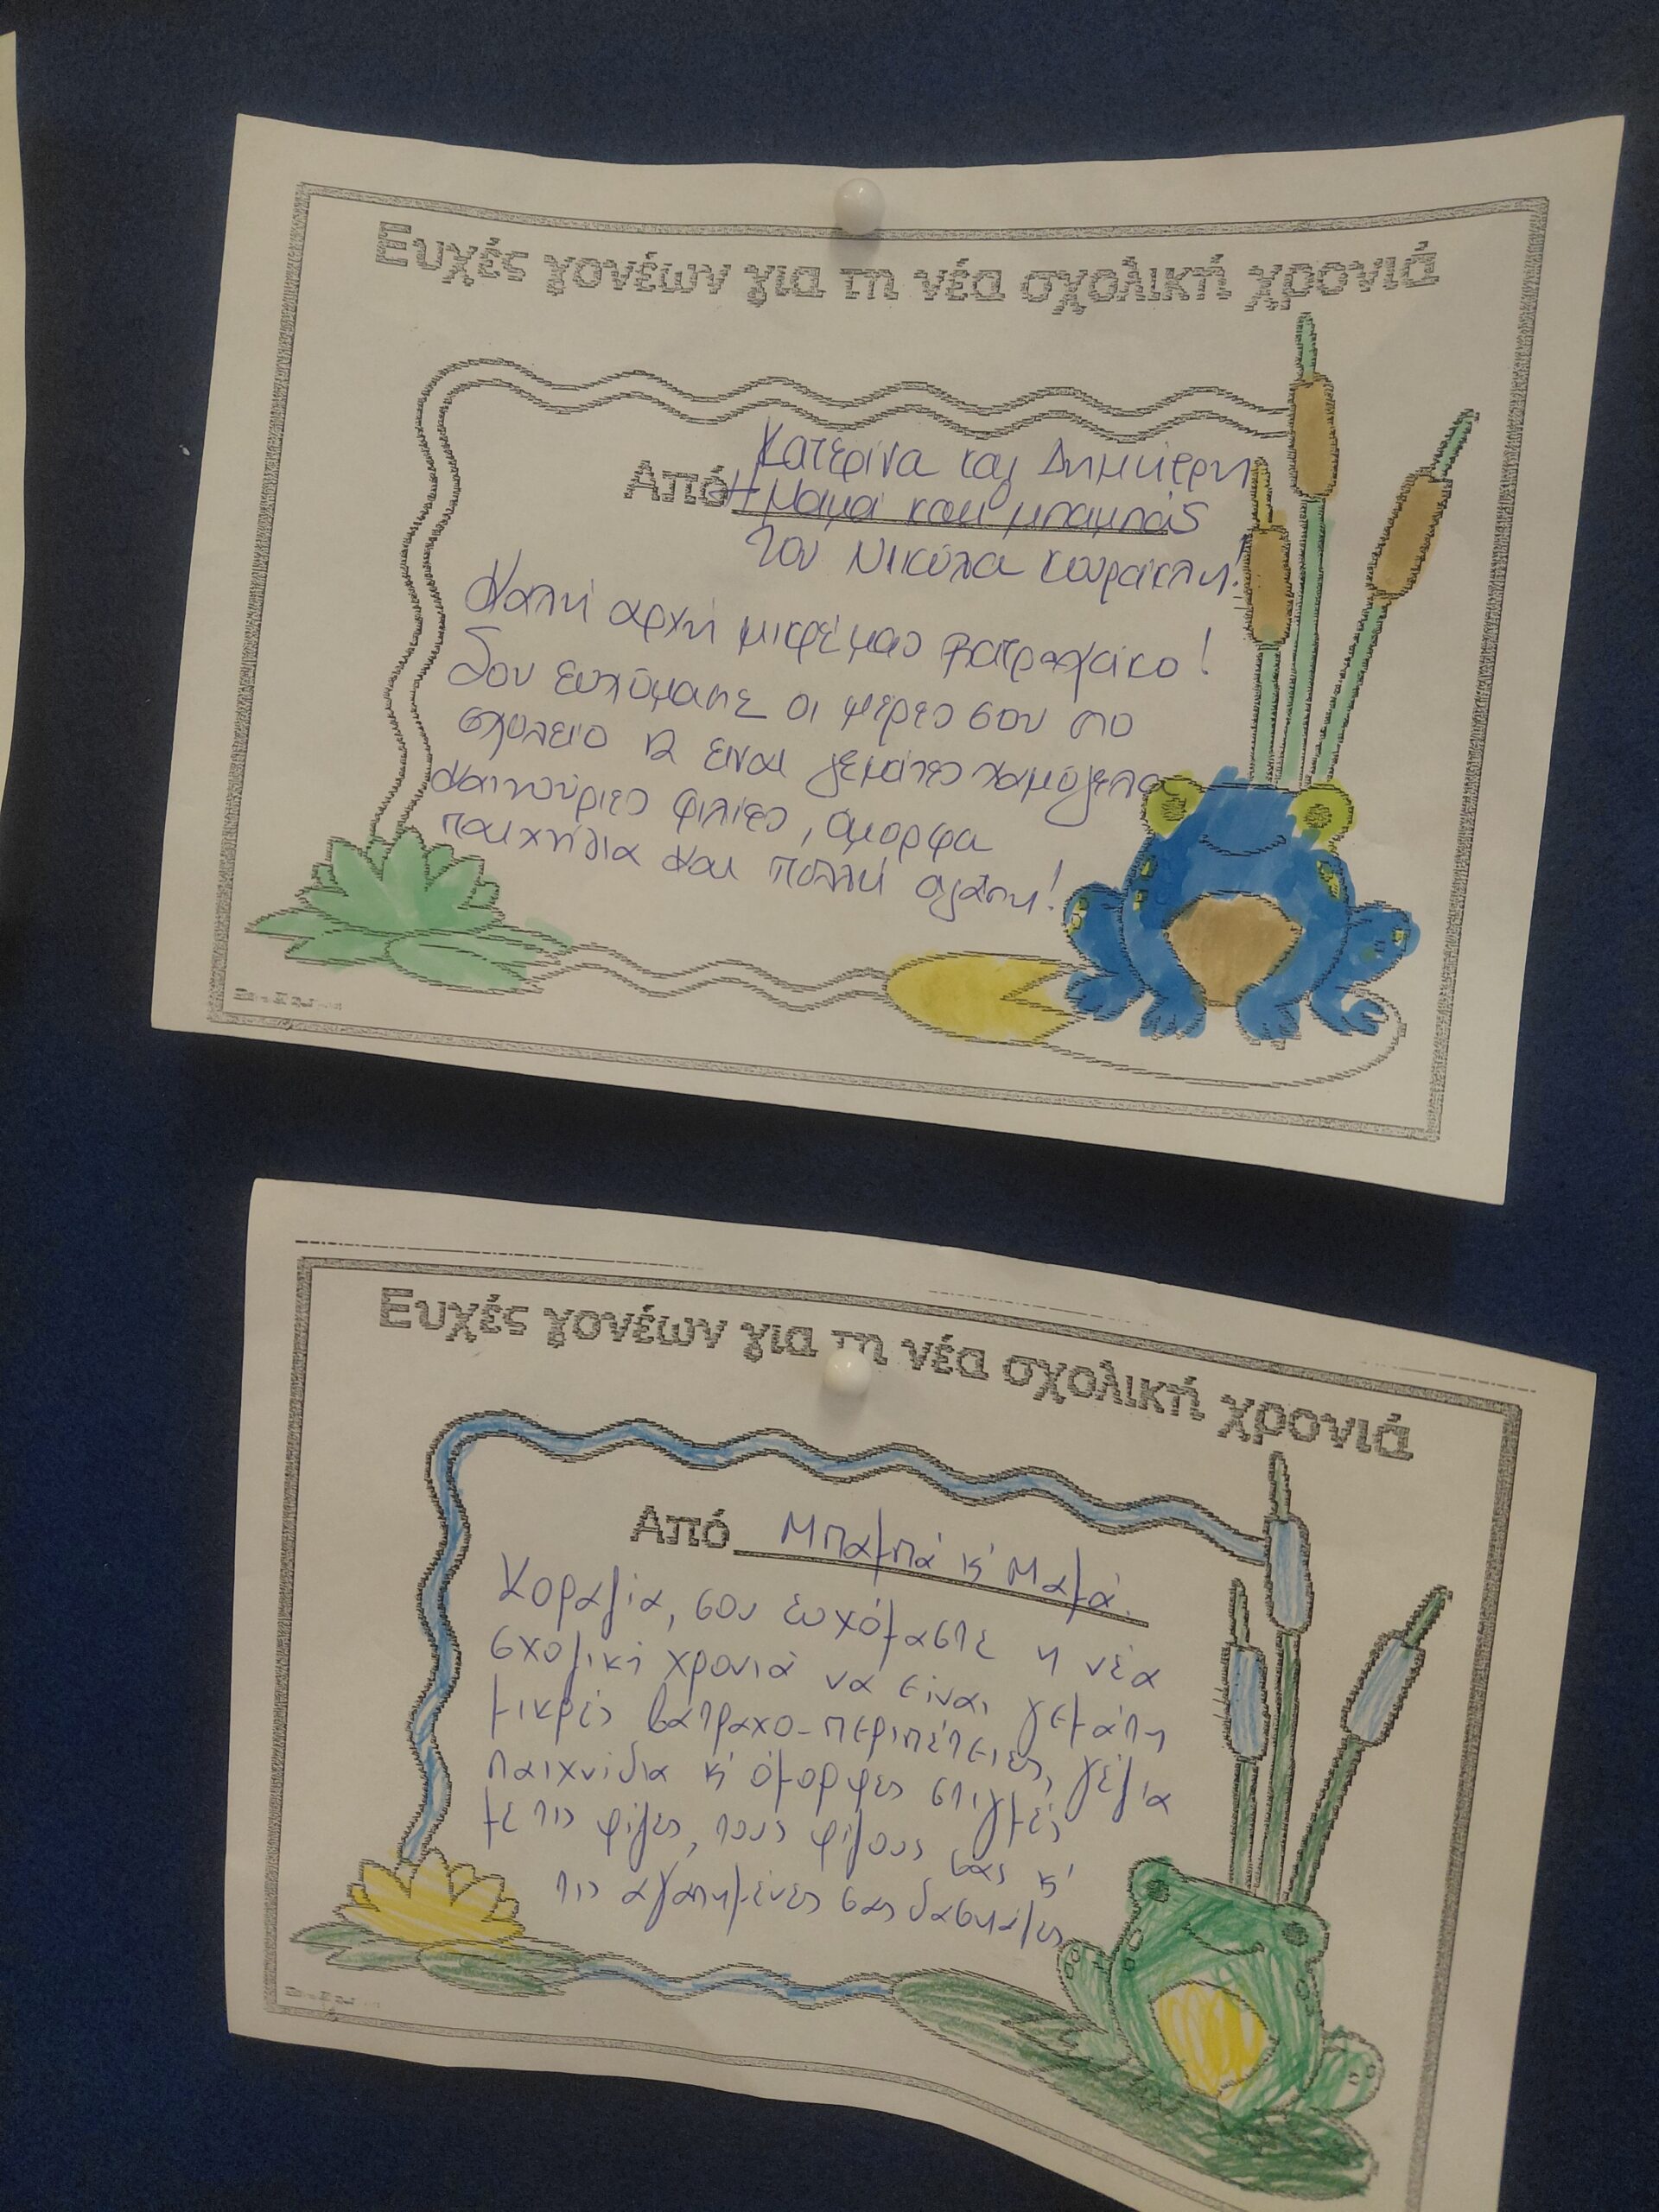 Ευχές γονέων για τη νέα σχολική χρονιά
Κατερίνα και Δημήτρη
Από Η μαμά και μπαμπάς
του Νικόλα
Καλή αρχή μικρέ μας βατραχάκο!
Σου ευχόμαστε οι μέρες σου στο
σχολείο να είναι γεμάτες χαμόγελα
καινούριες φιλίες, όμορφα
παιχνίδια και πολλή αγάπη!
Ευχές γονέων για τη νέα σχολική χρονιά
Από Μπαμπά κ' Μαμά.
σου ευχόμαστε η νέα
σχολική χρονιά να είναι γεμάτη
μικρές βατραχο-περιπέτειες, γέλια
παιχνίδια κ' όμορφες στιγμές
με τις φίλες, τους φίλους σας κ'
τις αγαπημένες σας δασκάλες